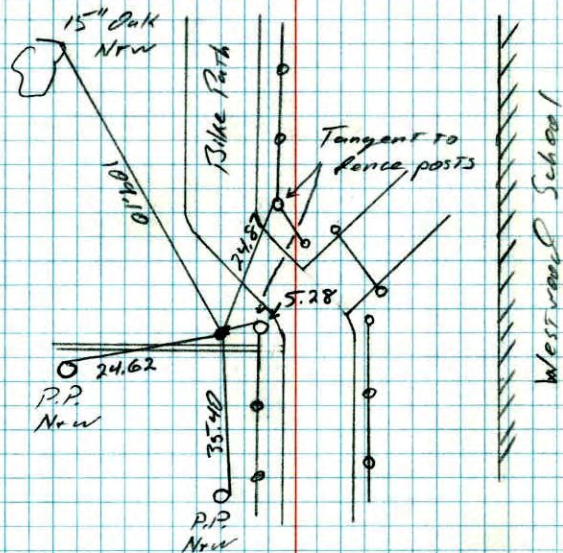 15" Oak
N+W
Bike Path
Tangent to
fence posts
104.10
24.87
5.28
24.62
P.P.
N+W
35.40
P.P.
N+W
Westwood School